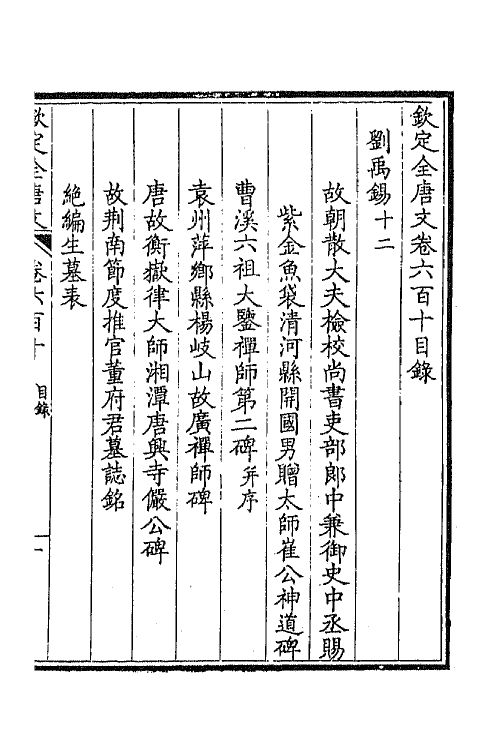 欽定全唐文卷六百十目錄
劉禹錫十二
故朝散大夫檢校尚書吏部郎中兼御史中丞賜
紫金魚袋清河縣開國男贈太師崔公神道碑
曹溪六祖大鑒禪師第二碑并序
袁州萍鄉縣楊岐山故廣禪師碑
唐故衡嶽律大師湘潭唐興寺儼公碑
故荆南節度推官董府君墓誌銘
絕編生墓表
欽定全唐文 卷六百十 目錄 一